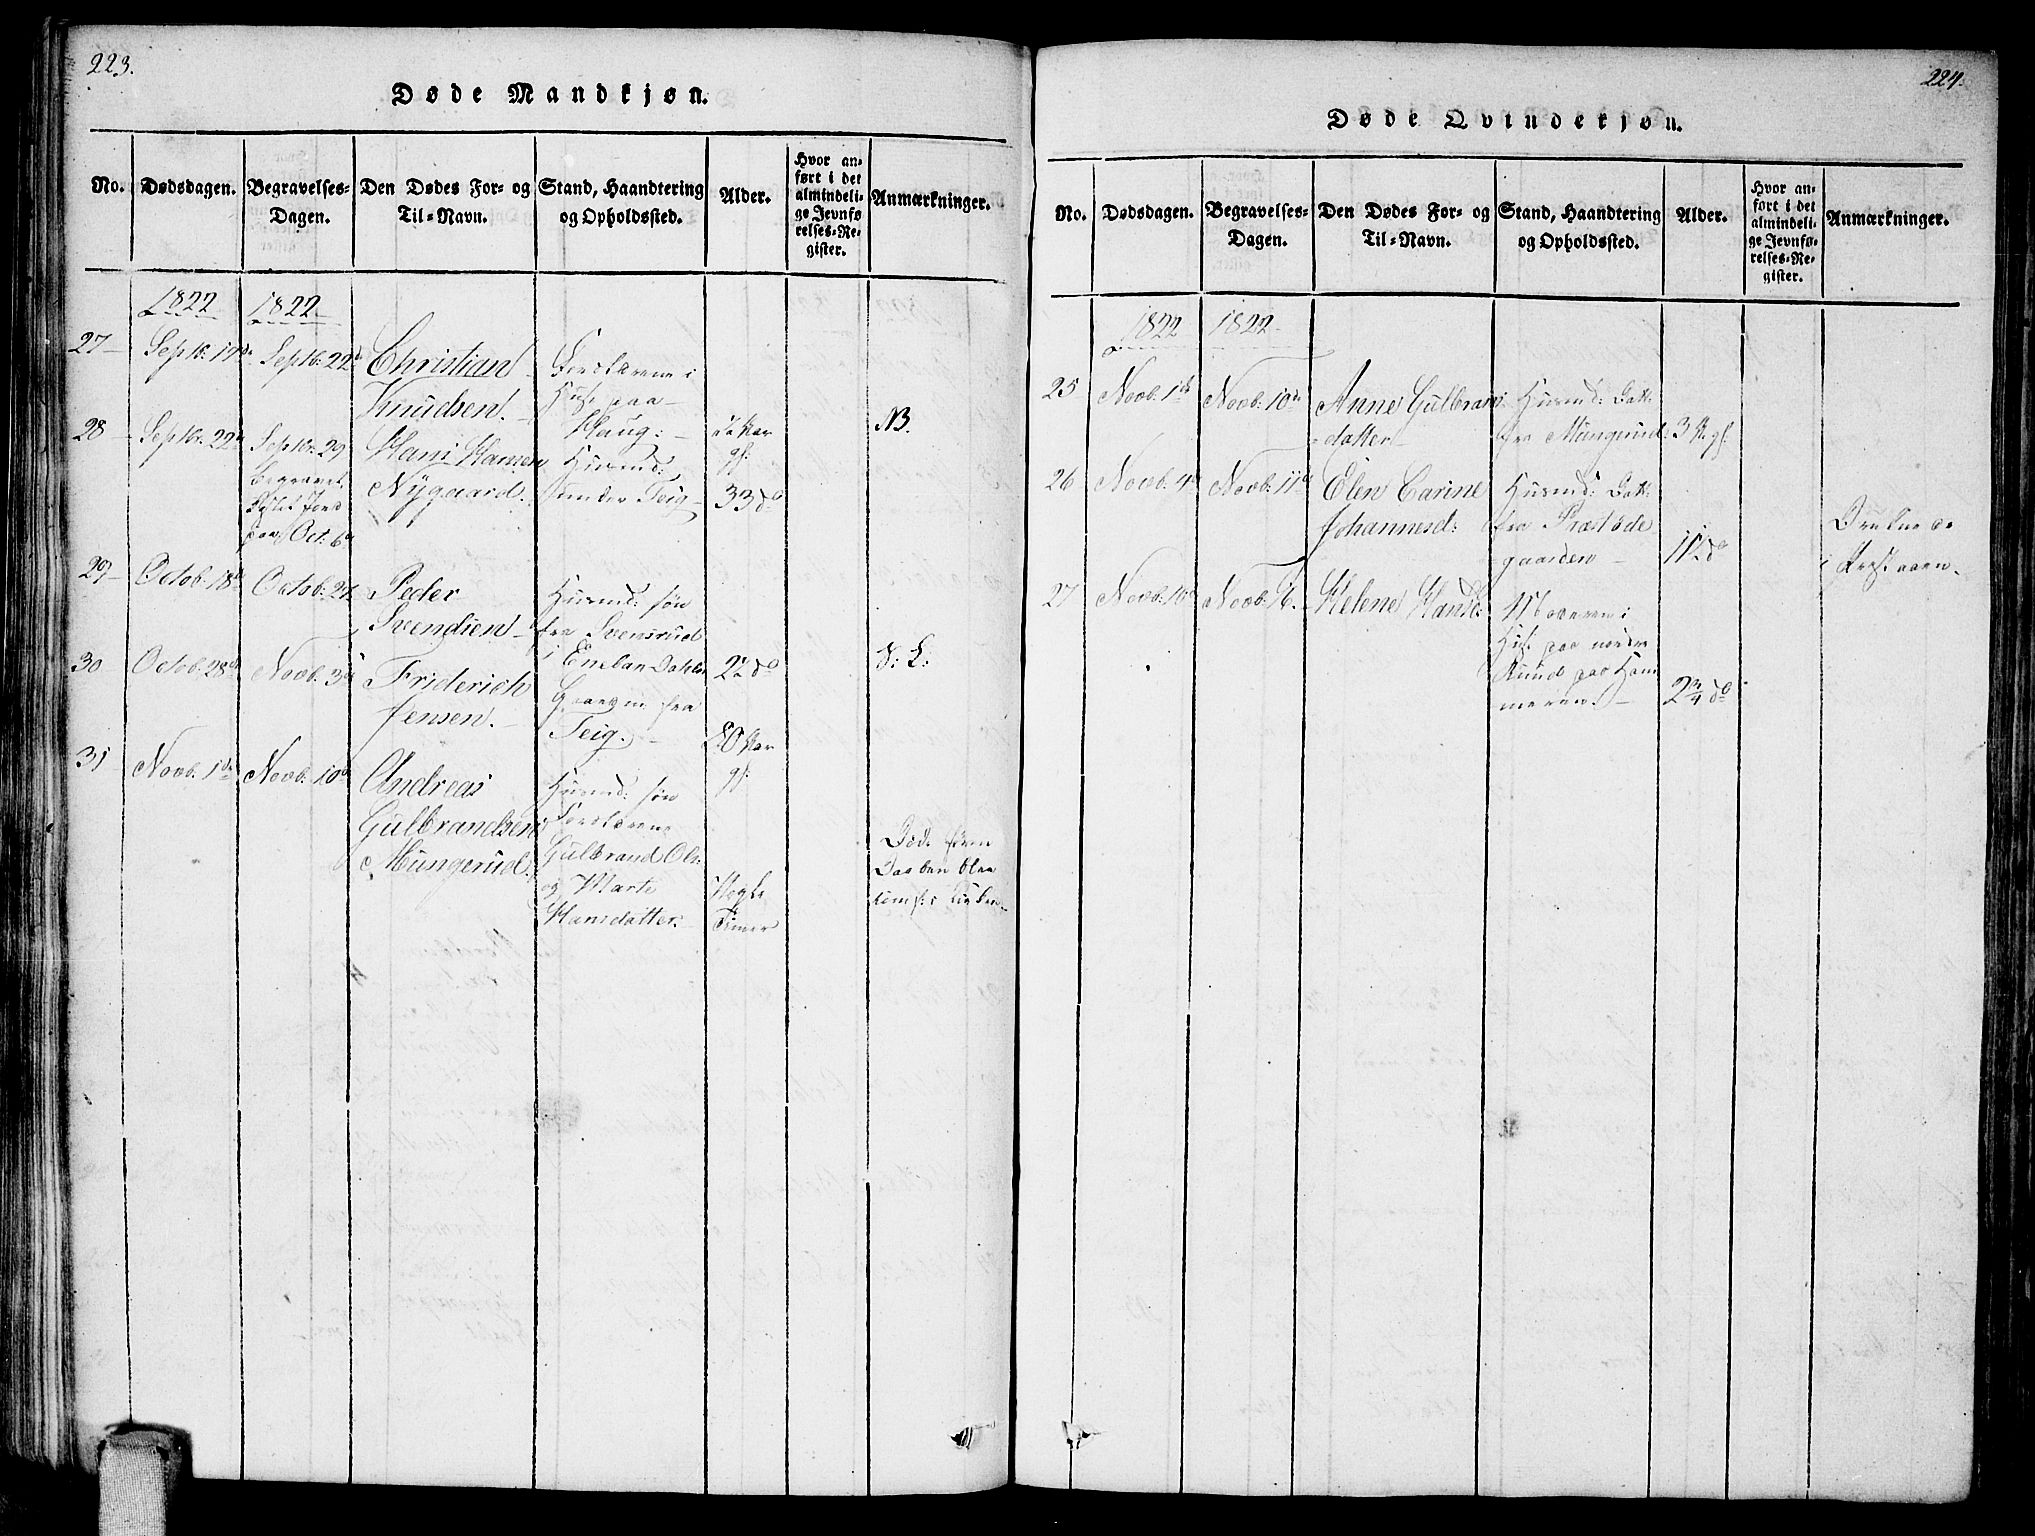 223.
Døde Mandkjøn.
No.
Dødsdagen.
Begravelses-
Dagen.
Den Dødes For- og
Til-Navn.
Stand, Haandtering
og Opholdssted.
Alder.
Hvor an-
ført i det
almindeli-
ge Jevnfø
relses-Re-
gister.
Anmærkninger.
1822 1822
27
Septb: 19de
Septb: 22d
Christian
Knudsen.
i
Huse paa
Haug:
Aar
gl:
28
Septbr: 22d
Septbr: 29
begravet
Jord
paa Oct: 6d
Hans Hansen
Nygaard.
Husmd:
under Teig
33 do
NB.
29
Octob: 18d
Octob: 27
Peder
Svendsen
Husmd: søn
fra Svensrud
i Eneban
2 do
30
Octob: 28d
Novb: 3d
Friderich
Jensen.
fra
Teig.
80 Aar
gl:
S: L:
31
Novb: 1de
Novb: 10d
Andreas
Gulbrandsen
Mungerud.
Husmd: søn
Forældrene
Gulbrand Ols:
og Marte
Hansdatter.
Nogle
Timer
Døde førend
Daaben blev
224.
Døde Qvindekjøn.
No.
Dødsdagen.
Begravelses-
Dagen.
Den Dødes For- og
Til-Navn.
Stand, Haandtering
og Opholdssted.
Alder.
Hvor an-
ført i det
almindeli-
ge Jevnfø-
relses-Re-
gister.
Anmærkninger.
1822 1822
25
Novb: 1de
Novb: 10de
Anne Gulbrans-
datter
Husmd: Datt:
fra Mungerud:
3 gl:
26
Novb: 4d
Novb: 11d
Elen Carine
Johannesd:
Husmd: Datt:
fra Præstøde
gaarden
11 do
Druknede
i
27
Novb: 10d
Novb: 16.
Helene Hansd:
i
Huse paa nordre
Ruud paa Ham
meren.
2 3/4 do